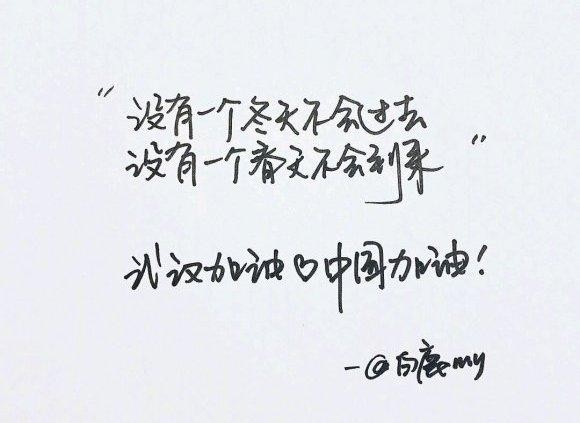 “没有一个冬天不会过去
没有一个春天不会到来”
武汉加油♡中国加油!
-@白鹿my